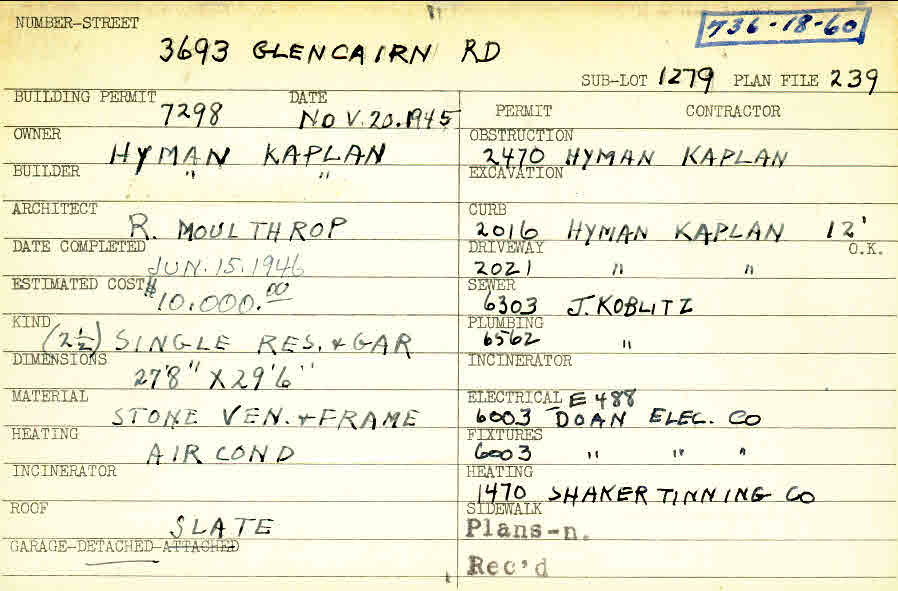 NUMBER-STREET
736-18-60
3693 GLENCAIRN RD
SUB-LOT 1279 PLAN FILE 239
BUILDING PERMIT 7298 DATE NOV. 20. 1945
OWNER HYMAN KAPLAN
BUILDER " "
ARCHITECT R. MOULTHROP
DATE COMPLETED JUN. 15. 1946
ESTIMATED COST $ 10.000.00
KIND (2½) SINGLE RES. + GAR
DIMENSIONS 27'8" X 29'6"
MATERIAL STONE VEN. + FRAME
HEATING AIR COND
INCINERATOR
ROOF SLATE
GARAGE-DETACHED-ATTACHED
PERMIT CONTRACTOR
OBSTRUCTION
2470 HYMAN KAPLAN
EXCAVATION
CURB
2016 HYMAN KAPLAN 12'
DRIVEWAY O.K.
2021 " "
SEWER
6303 J. KOBLITZ
PLUMBING
6562 "
INCINERATOR
ELECTRICAL E 488
6003 DOAN ELEC. CO
FIXTURES
6003 " " "
HEATING
1470 SHAKER TINNING CO
SIDEWALK
Plans-n.
Rec'd